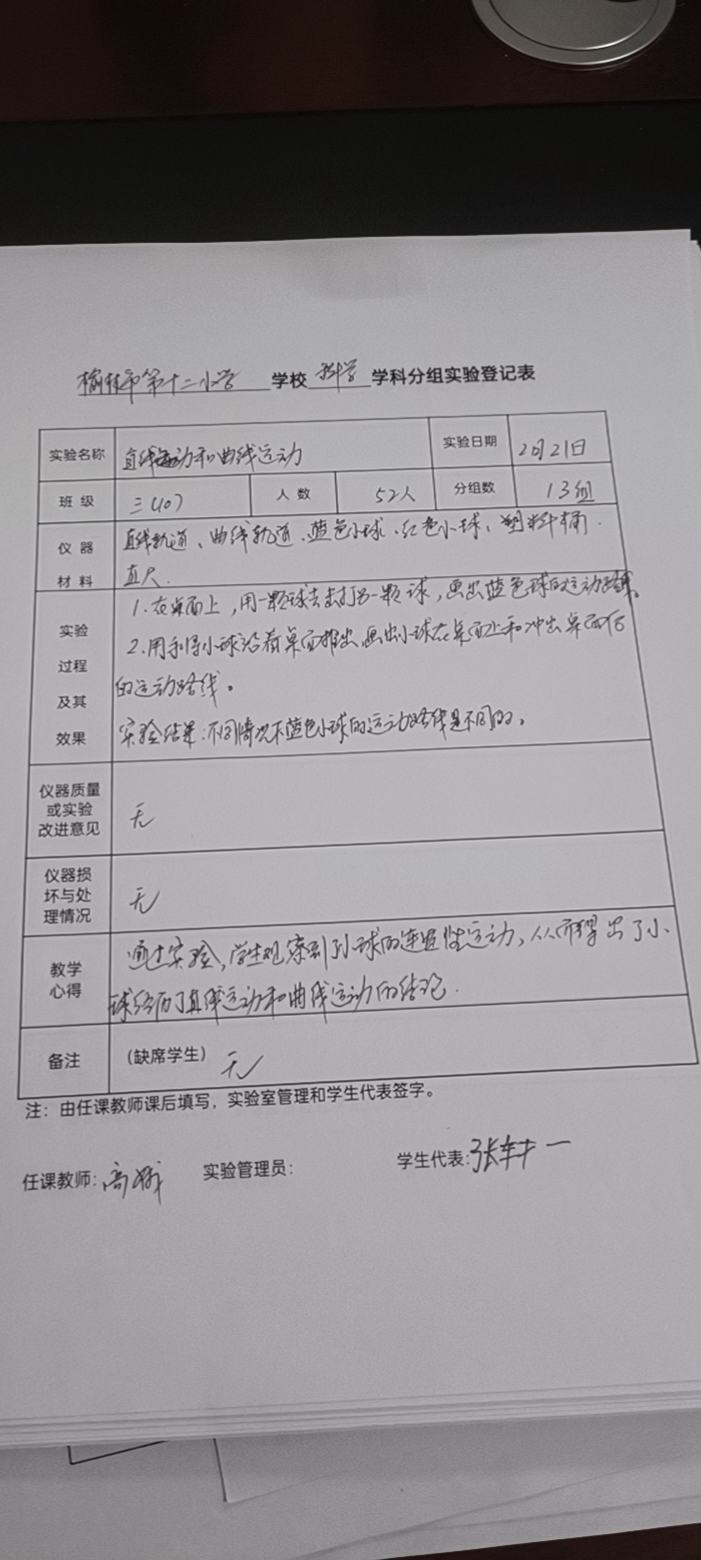 榆林市第十二小学 学校 科学 学科分组实验登记表
实验名称 直线运动和曲线运动 实验日期 2月21日
班 级 三(10) 人 数 52人 分组数 13组
仪 器 直线轨道、曲线轨道、蓝色小球、红色小球、塑料桶、
材 料 直尺.
1.在桌面上,用一颗球去击打另一颗球,画出蓝色球的运动路线。
实验
2.用手指小球沿着桌面推出,画出小球在桌面上和冲出桌面后
过程
的运动路线。
及其
效果 实验结果:不同情况下蓝色小球的运动路线是不同的。
仪器质量
或实验 无
改进意见
仪器损
坏与处 无
理情况
教学 通过实验,学生观察到小球的连贯性运动,从而得出了小
心得 球经历了直线运动和曲线运动的结论.
备注 (缺席学生) 无
注:由任课教师课后填写,实验室管理和学生代表签字。
任课教师:高 实验管理员: 学生代表:张轩一